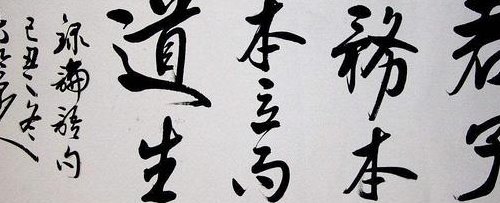 君子
務本
本立而
道生
錄論語句
己丑之冬